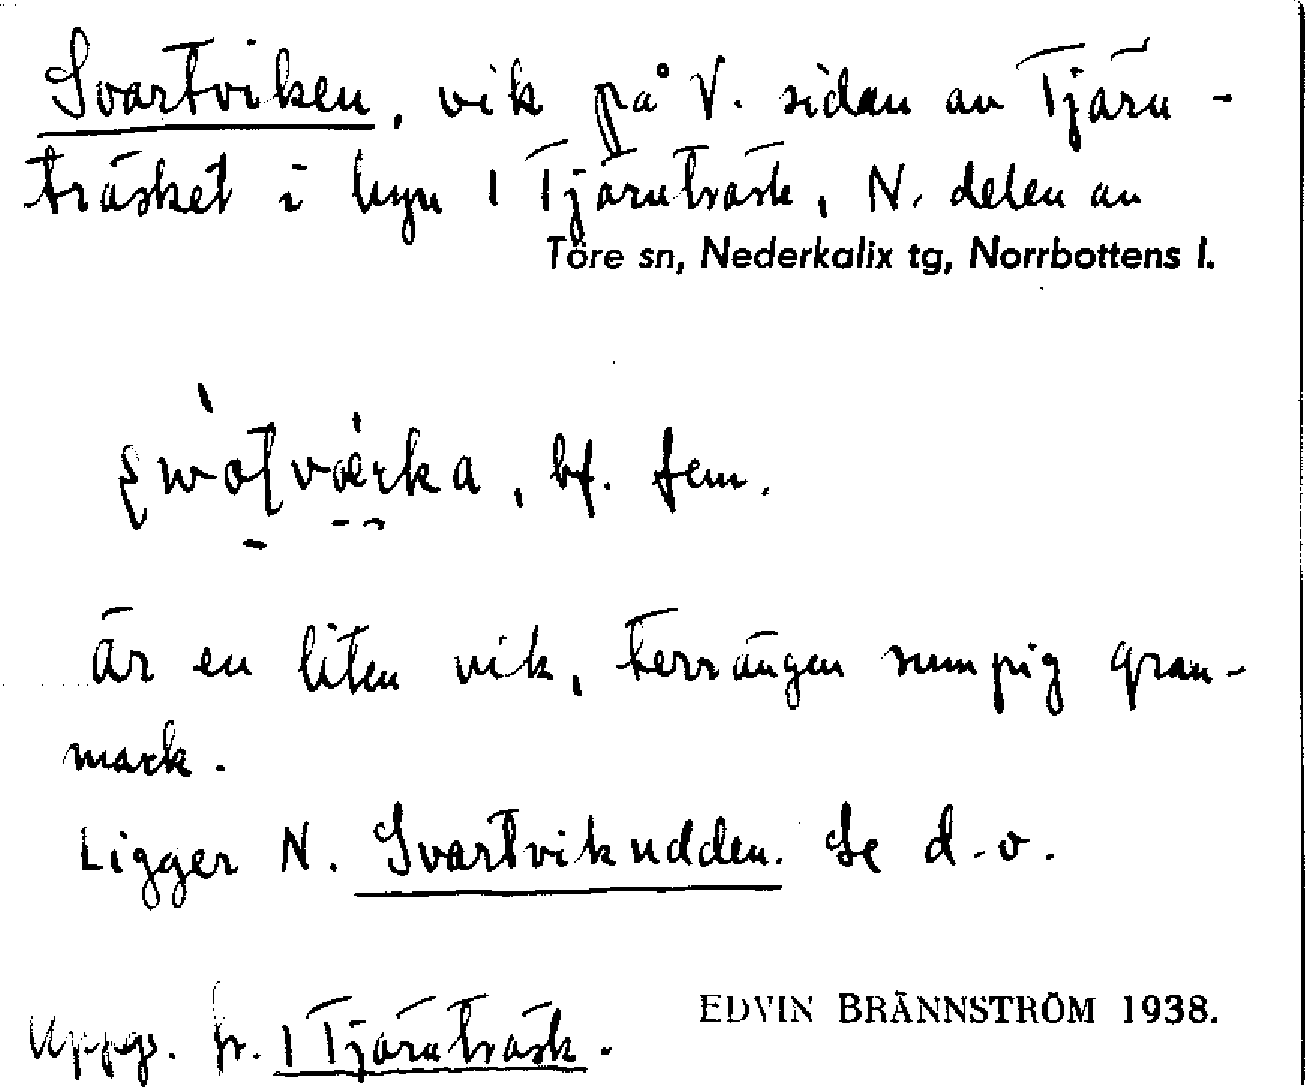 Svartviken, vik på V. sidan av Tjärn-
träsket i byn 1 Tjärnträsk, N. delen av
Töre sn, Nederkalix tg, Norrbottens l.
bf. fem.
är en liten vik, terrängen sumpig gran-
mark.
Ligger N. Svartvikudden. Se d.o.
Uppg. fr. 1 Tjärnträsk.
EDVIN BRÄNNSTRÖM 1938.